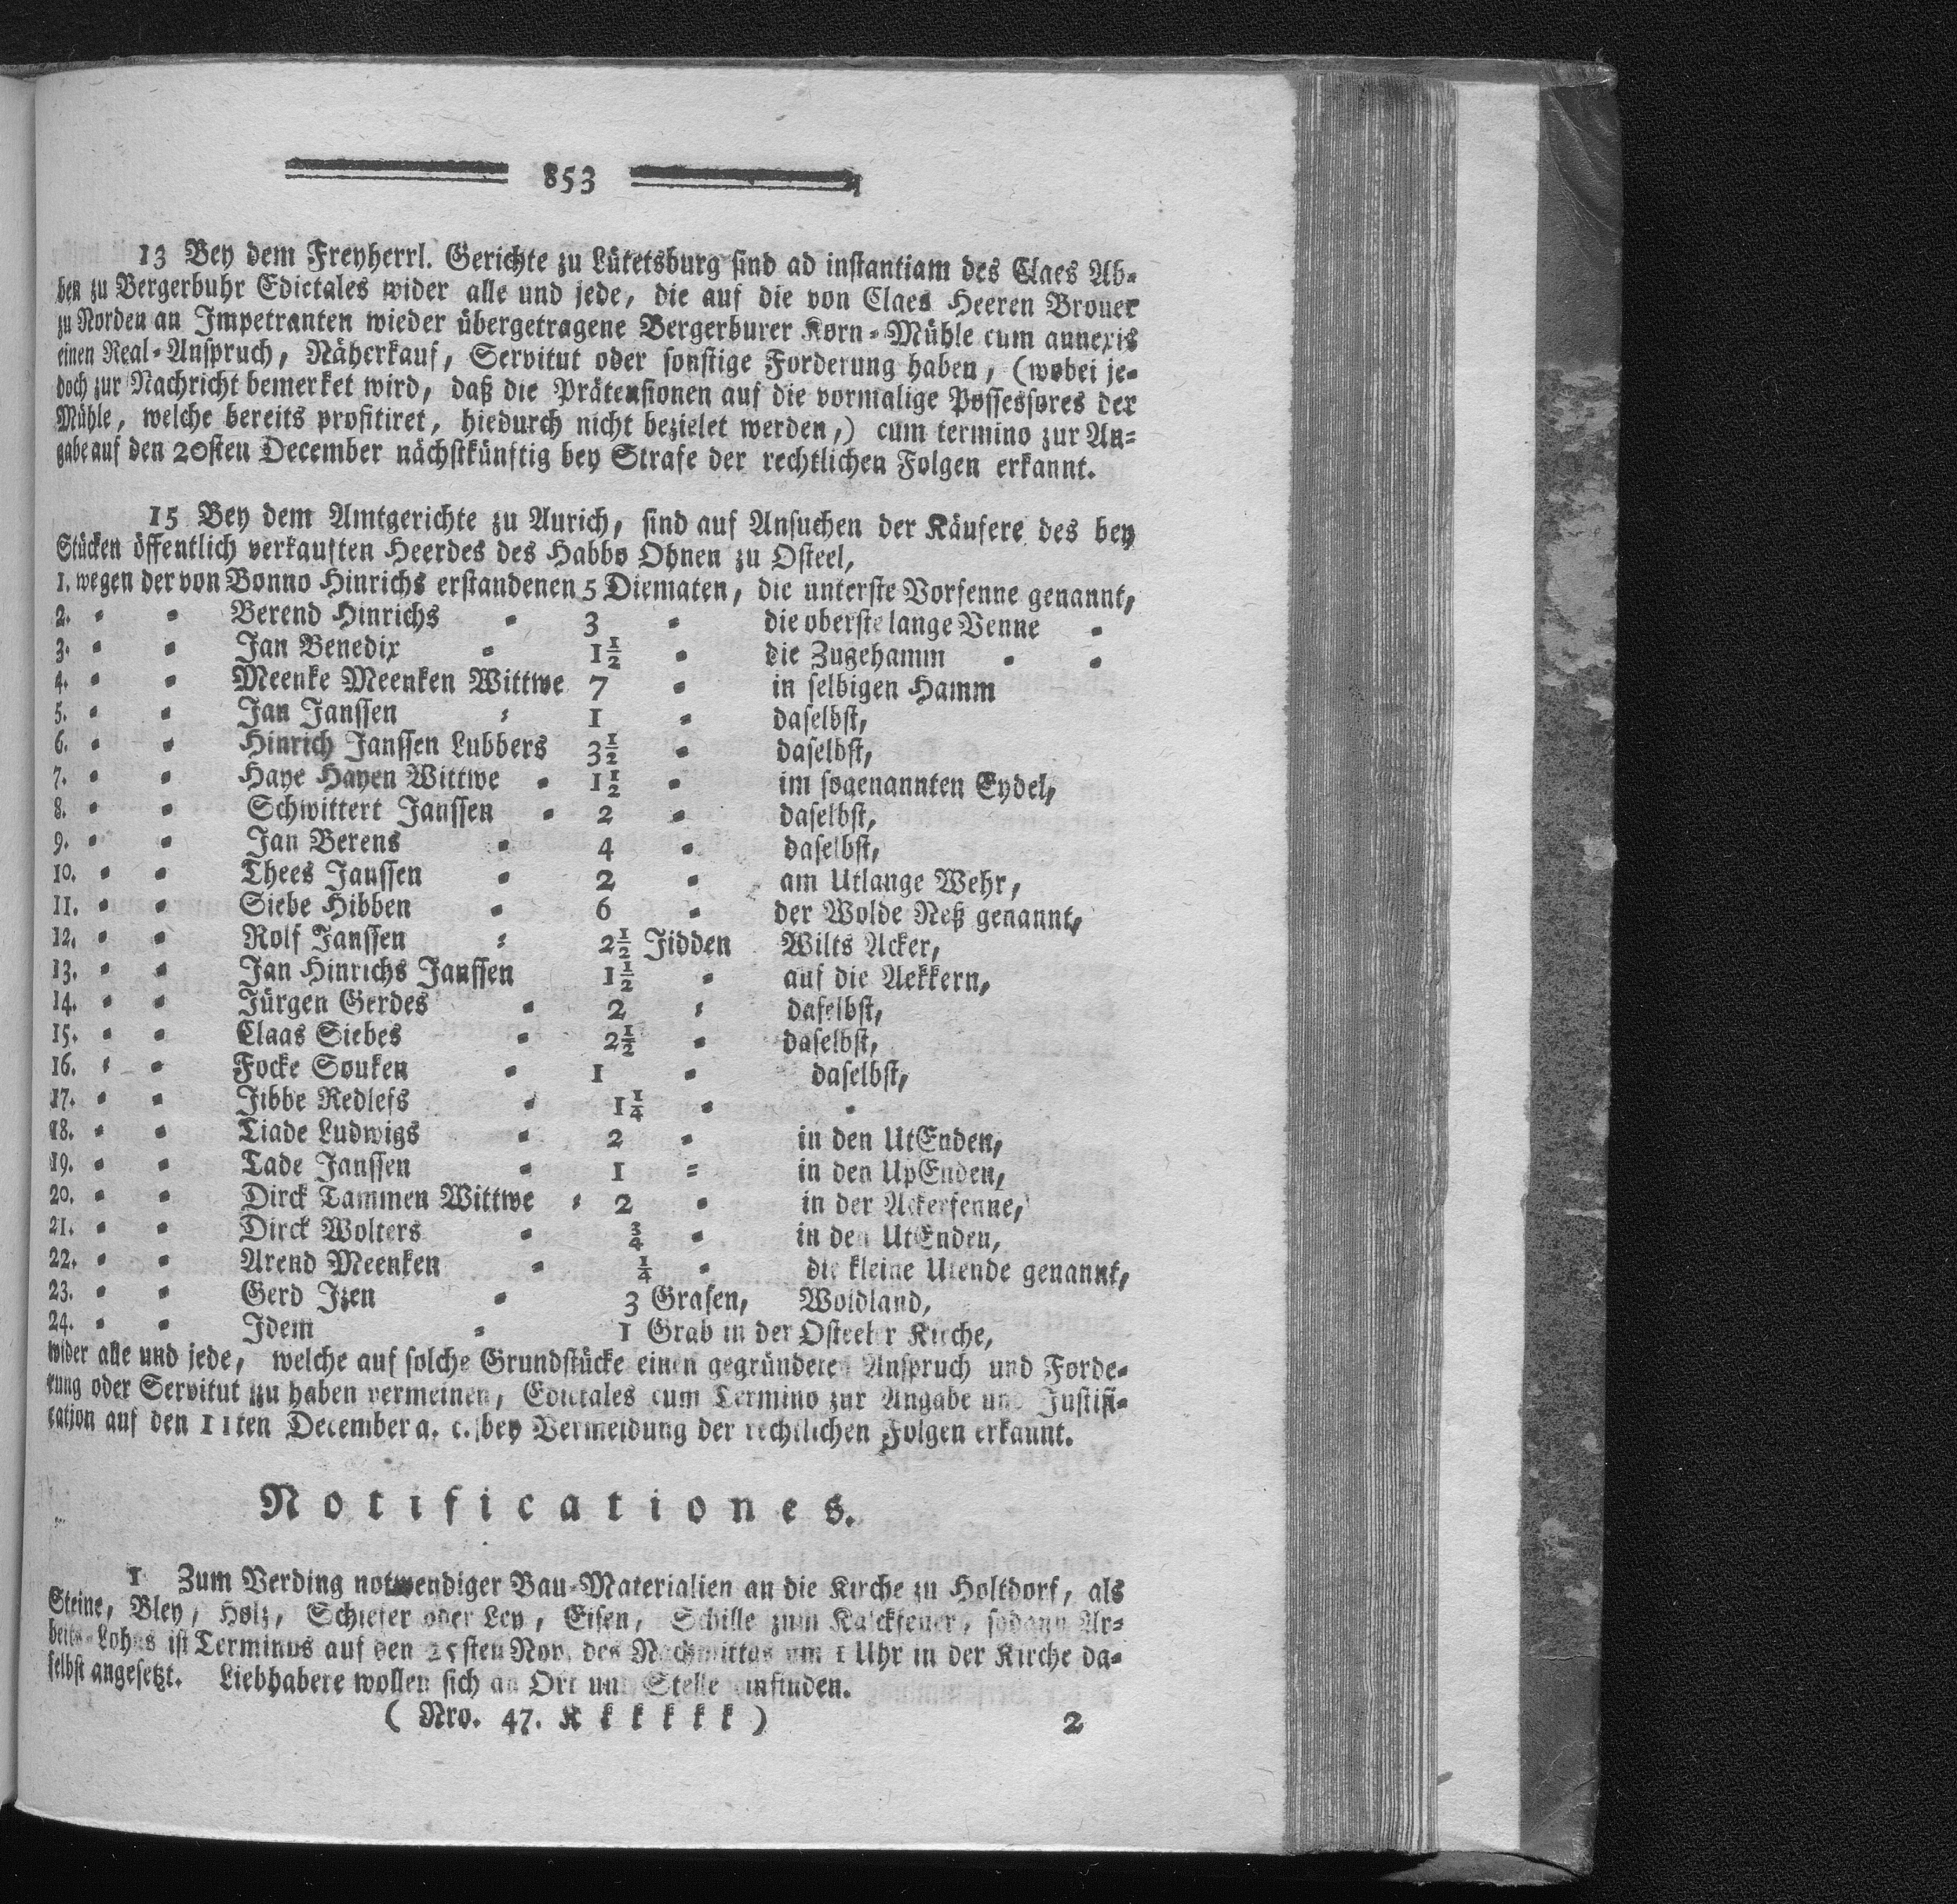 853
13 Bey dem Freyherrl. Gerichte zu Lütetsburg sind ad instantiam des Claes Ab-
ben zu Bergerbuhr Edictales wider alle und jede, die auf die von Claes Heeren Brouer
zu Norden an Impetranten wieder übergetragene Bergerburer Korn-Mühle cum annexis
einen Real-Anspruch, Näherkauf, Servitut oder sonstige Forderung haben, (wobei je-
doch zur Nachricht bemerket wird, daß die Prätensionen auf die vormalige Possessores der
Mühle, welche bereits profitiret, hiedurch nicht bezielet werden,) cum termino zur An-
gabe auf den 20sten December nächstkünftig bey Strafe der rechtlichen Folgen erkannt.
15 Bey dem Amtgerichte zu Aurich, sind auf Ansuchen der Käufere des bey
Stücken öffentlich verkauften Heerdes des Habbo Ohnen zu Osteel,
1. wegen der von Bonno Hinrichs erstandenen 5 Diematen, die unterste Vorfenne genannt,
2. - - Berend Hinrichs - 3 - die oberste lange Venne -
3. - - Jan Benedix - 1½ - die Zugehamm - -
4. - - Meenke Meenken Wittwe 7 - in selbigen Hamm
5. - - Jan Janssen - 1 - daselbst,
6. - - Hinrich Janssen Lubbers 3½ - daselbst,
7. - - Haye Hayen Wittwe - 1½ - im sogenannten Eydel,
8. - - Schwittert Janssen - 2 - daselbst,
9. - - Jan Berens - 4 - daselbst,
10. - - Thees Janssen - 2 - am Utlange Wehr,
11. - - Siebe Hibben - 6 - der Wolde Neß genannt,
12. - - Rolf Janssen - 2½ Jidden Wilts Acker,
13. - - Jan Hinrichs Janssen 1½ - auf die Aekkern,
14. - - Jürgen Gerdes - 2 - daselbst,
15. - - Claas Siebes - 2½ - daselbst,
16. - - Focke Souken - 1 - daselbst,
17. - - Jibbe Redlefs - 1¼ - -
18. - - Tiade Ludwigs - 2 - in den UtEnden,
19. - - Tade Janssen - 1 - in den UpEnden,
20. - - Dirck Tammen Wittwe - 2 - in der Ackerfenne,
21. - - Dirck Wolters - ¾ - in den UtEnden,
22. - - Arend Meenken - ¼ - die kleine Utende genannt,
23. - - Gerd Jzen - 3 Grasen, Woldland,
24. - - Idem - 1 Grab in der Osteeler Kirche,
wider alle und jede, welche auf solche Grundstücke einen gegründeten Anspruch und Forde-
rung oder Servitut zu haben vermeinen, Edictales cum Termino zur Angabe und Justifi-
cation auf den 11ten December a. c. bey Vermeidung der rechtlichen Folgen erkannt.
Notificationes.
1 Zum Verding notwendiger Bau-Materialien an die Kirche zu Holtdorf, als
Steine, Bley, Holz, Schiefer oder Ley, Eisen, Schille zum Kalckfeuer, sodann Ar-
beits-Lohns ist Terminus auf den 25sten Nov. des Nachmittas um 1 Uhr in der Kirche da-
selbst angesetzt. Liebhabere wollen sich an Ort und Stelle einfinden.
( Nro. 47. K k k k k k ) 2